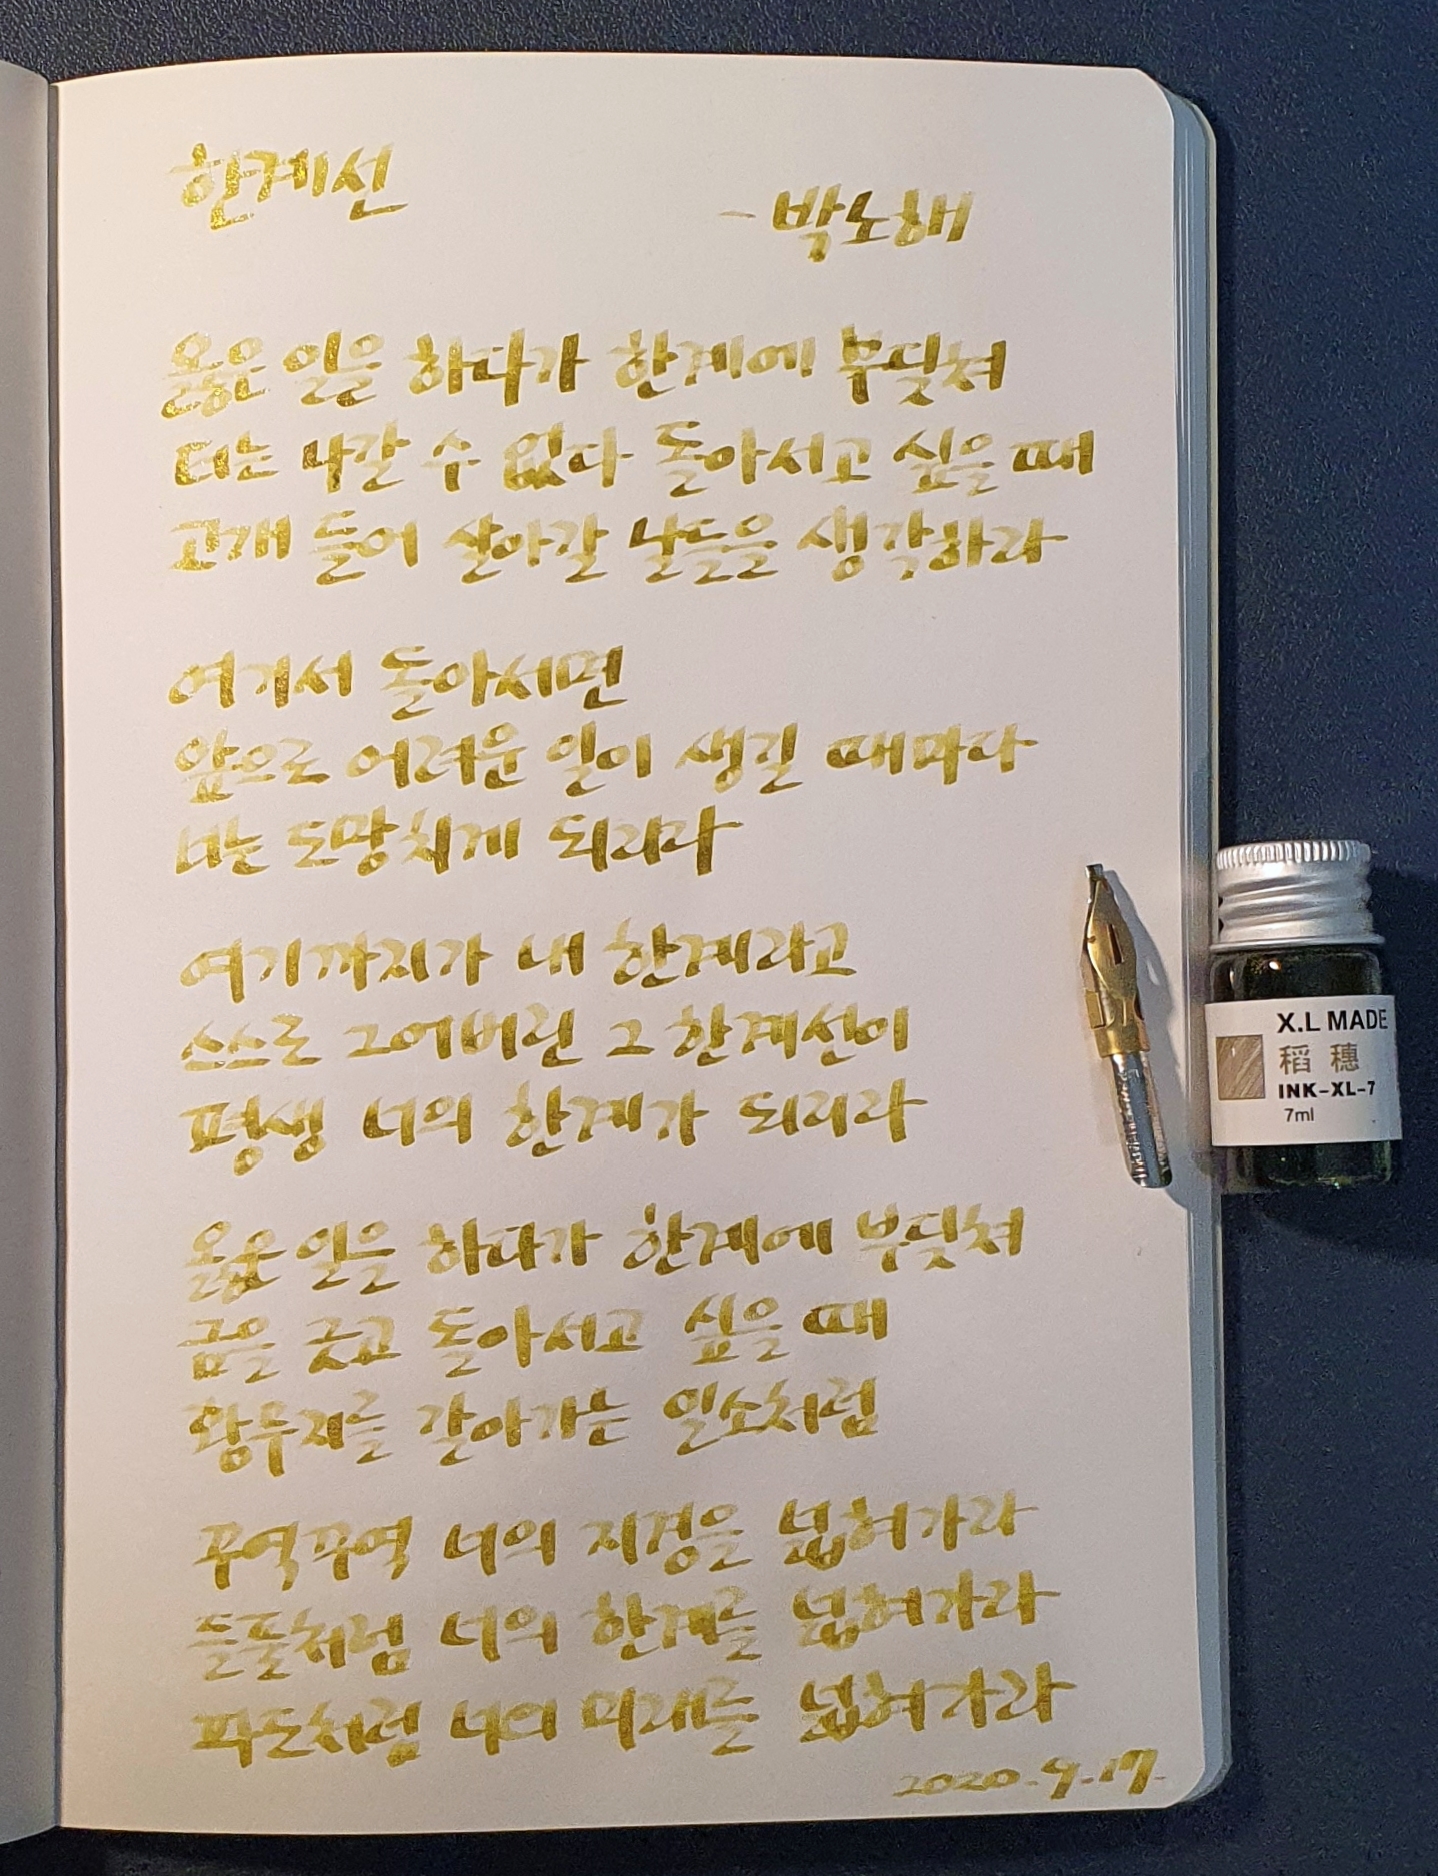 한계선
- 박노해
옳은 일을 하다가 한계에 부딪쳐
더는 나갈 수 없다 돌아서고 싶을 때
고개 들어 살아갈 날들을 생각하라
여기서 돌아서면
앞으로 어려운 일이 생길 때마다
너는 도망치게 되리라
여기까지가 내 한계라고
스스로 그어버린 그 한계선이
평생 너의 한계가 되리라
옳은 일을 하다가 한계에 부딪쳐
금을 긋고 돌아서고 싶을 때
황무지를 갈아가는 일소처럼
꾸역꾸역 너의 지경을 넓혀가라
들풀처럼 너의 한계를 넓혀가라
파도처럼 너의 미래를 넓혀가라
2020.9.17.
X.L MADE
稻穗
INK-XL-7
7ml